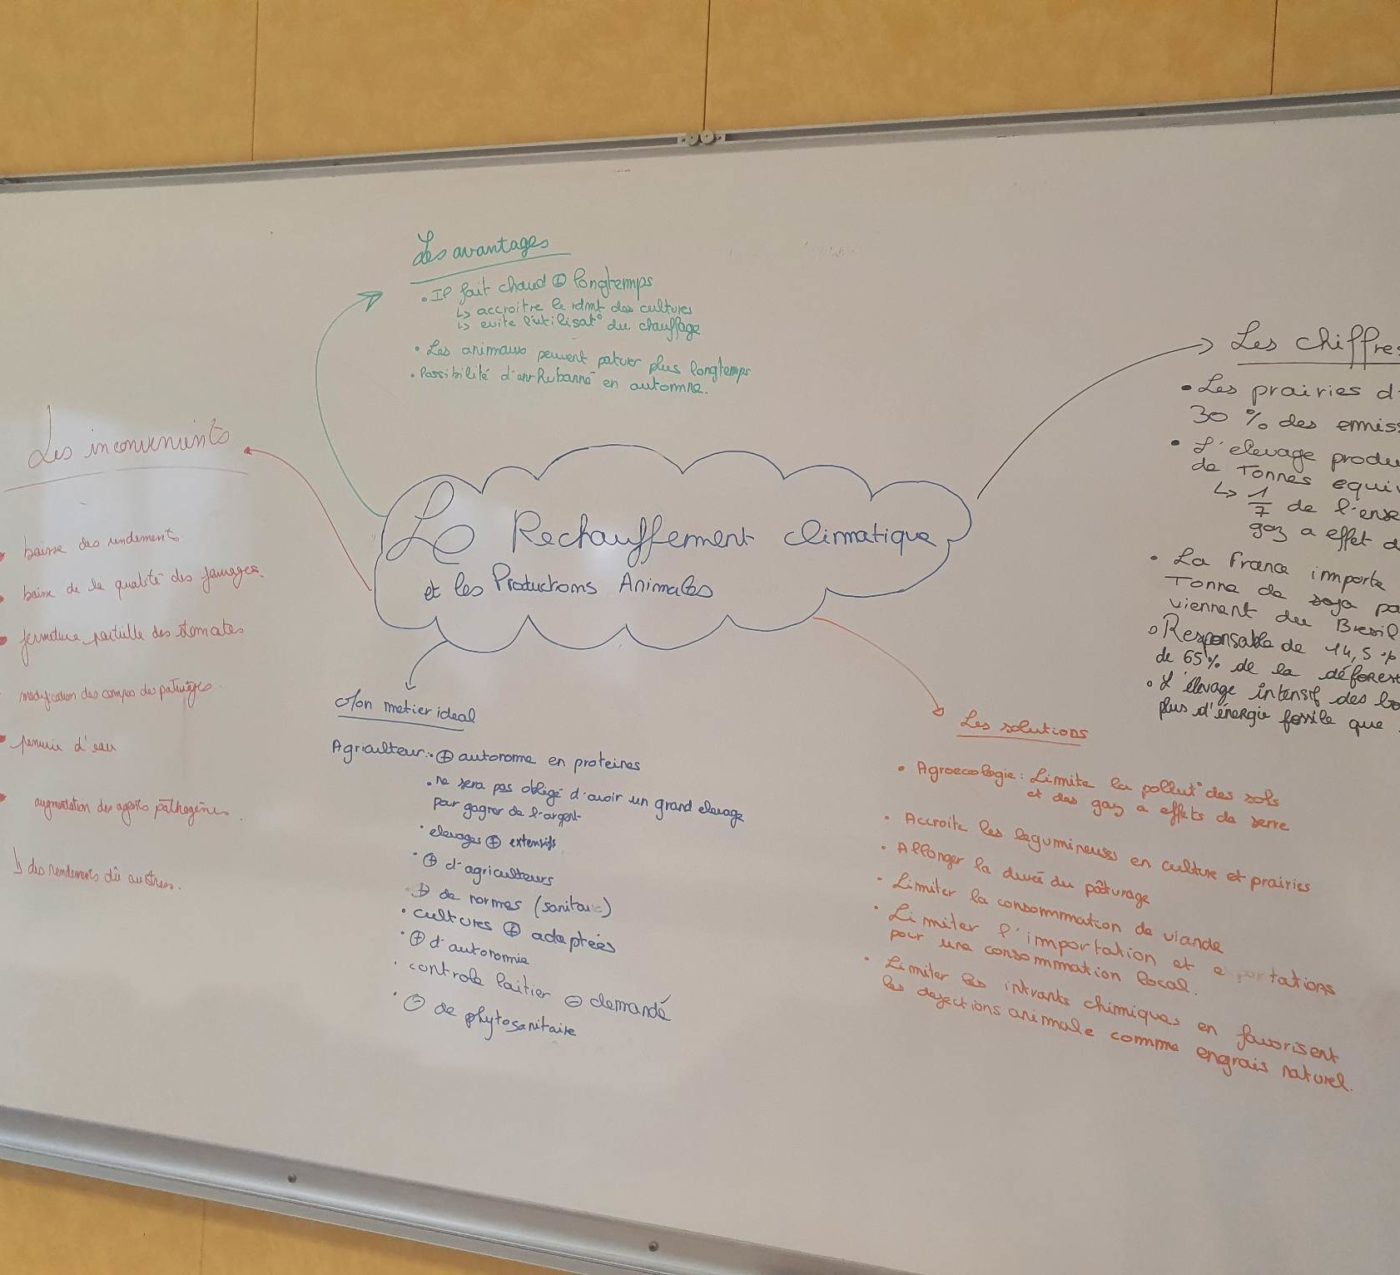 Les avantages
• Il fait chaud ⊕ longtemps
↳ accroitre le rdmt des cultures
↳ evite l'utilisat° du chauffage
• Les animaux peuvent paturer plus longtemps
• Possibilité d'enrubanné en automne.
Les inconvenients
• baisse des rendements
• baisse de la qualité des fourrages.
• fermeture partielle des stomates
modification des compos des paturages.
• penurie d'eau
• augmentation des agents pathogènes.
↳ des rendements dû au stress.
Le Rechauffement climatique
et les Productions Animales
Les chiffres
• Les prairies d'
30 % des emiss
• L'elevage produ
de Tonnes equiv
↳ 1/7 de l'ense
gaz a effet d
• La France importe
Tonne de soja pa
viennent du Bresil
• Responsable de 14,5 %
de 65% de la déforest
• L'élevage intensif des bo
plus d'énergie fossile que
Mon metier ideal
Agriculteur : ⊕ autonome en proteines
• ne sera pas obligé d'avoir un grand elevage
pour gagner de l'argent
• elevages ⊕ extensifs
• ⊕ d'agriculteurs
de normes (sanitaire)
• cultures ⊕ adaptées
• ⊕ d'autonomie
• controle laitier ⊖ demandé
• ⊖ de phytosanitaire
Les solutions
• Agroecologie : Limite la pollut° des sols
et des gaz a effets de serre
• Accroite les legumineuses en culture et prairies
• Allonger la dureé du pâturage
• Limiter la consommation de viande
• Limiter l'importation et exportations
pour une consommation local.
• Limiter les intrants chimiques en favorisent
les dejections animale comme engrais naturel.